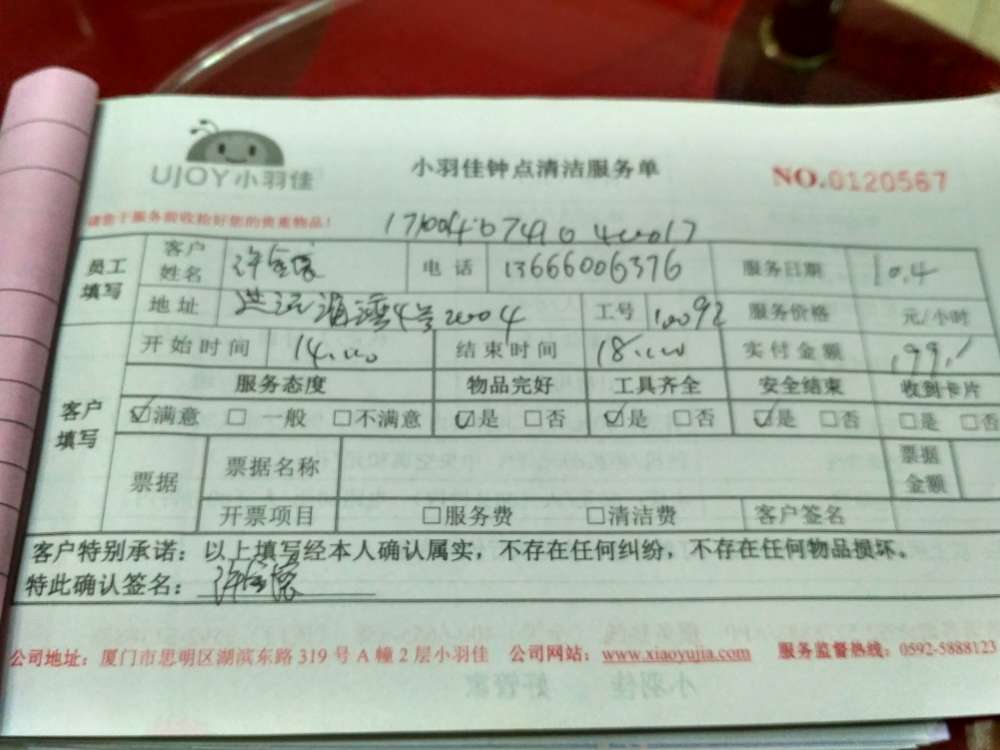 UJOY小羽佳
小羽佳钟点清洁服务单
NO.0120567
请您于服务前收拾好您的贵重物品！
员工填写 客户姓名 许 电话 13666006376 服务日期 10.4
地址 海湾4号2004 工号 10092 服务价格 元/小时
开始时间 14.00 结束时间 18.00 实付金额 199.1
客户填写 服务态度 物品完好 工具齐全 安全结束 收到卡片
☑满意 □一般 □不满意 ☑是 □否 ☑是 □否 ☑是 □否 □是 □否
票据 票据名称 票据金额
开票项目 □服务费 □清洁费 客户签名
客户特别承诺：以上填写经本人确认属实，不存在任何纠纷，不存在任何物品损坏。
特此确认签名：许
公司地址：厦门市思明区湖滨东路 319 号 A 幢 2 层小羽佳 公司网站：www.xiaoyujia.com 服务监督热线：0592-5888123